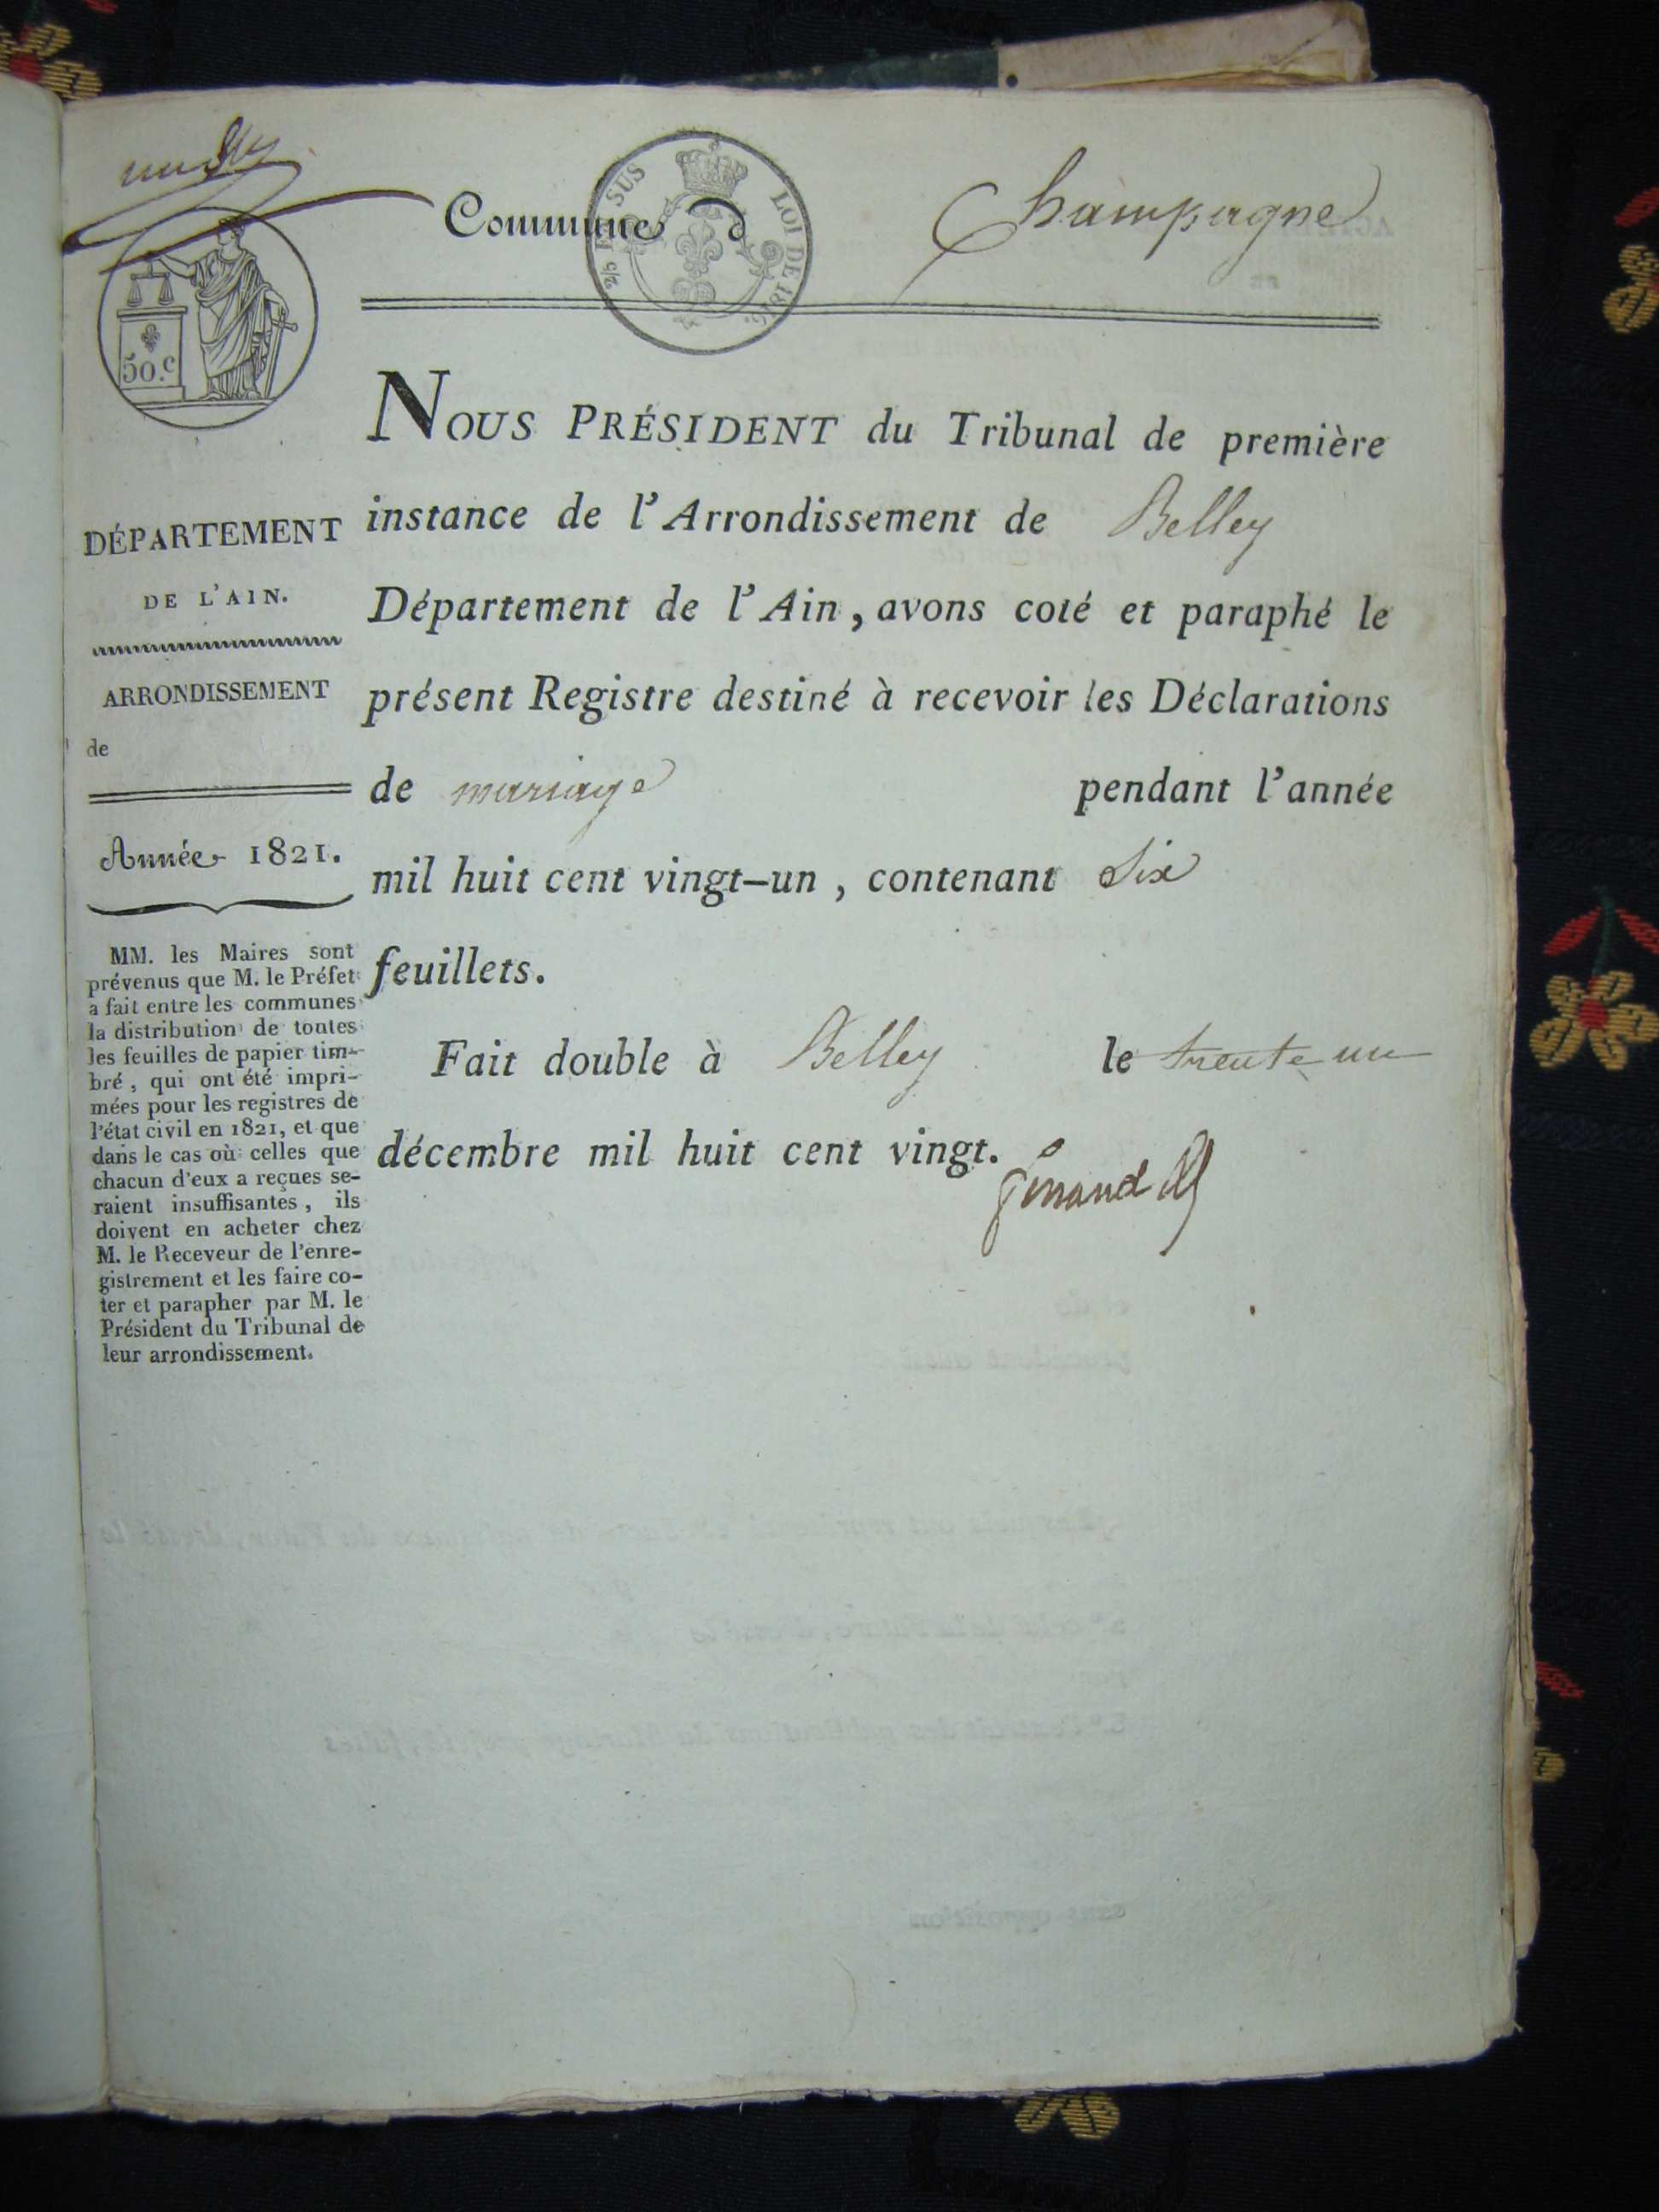 Commune d Champagne
2/5 EN SUS
LOI DE 1816.
50.c
DÉPARTEMENT
DE L'AIN.
ARRONDISSEMENT
de
Année 1821.
MM. les Maires sont
prévenus que M. le Préfet
a fait entre les communes
la distribution de toutes
les feuilles de papier tim-
bré, qui ont été impri-
mées pour les registres de
l'état civil en 1821, et que
dans le cas où celles que
chacun d'eux a reçues se-
raient insuffisantes, ils
doivent en acheter chez
M. le Receveur de l'enre-
gistrement et les faire co-
ter et parapher par M. le
Président du Tribunal de
leur arrondissement.
NOUS PRÉSIDENT du Tribunal de première
instance de l'Arrondissement de Belley
Département de l'Ain, avons coté et paraphé le
présent Registre destiné à recevoir les Déclarations
de mariage pendant l'année
mil huit cent vingt-un, contenant Six
feuillets.
Fait double à Belley le trente un
décembre mil huit cent vingt.